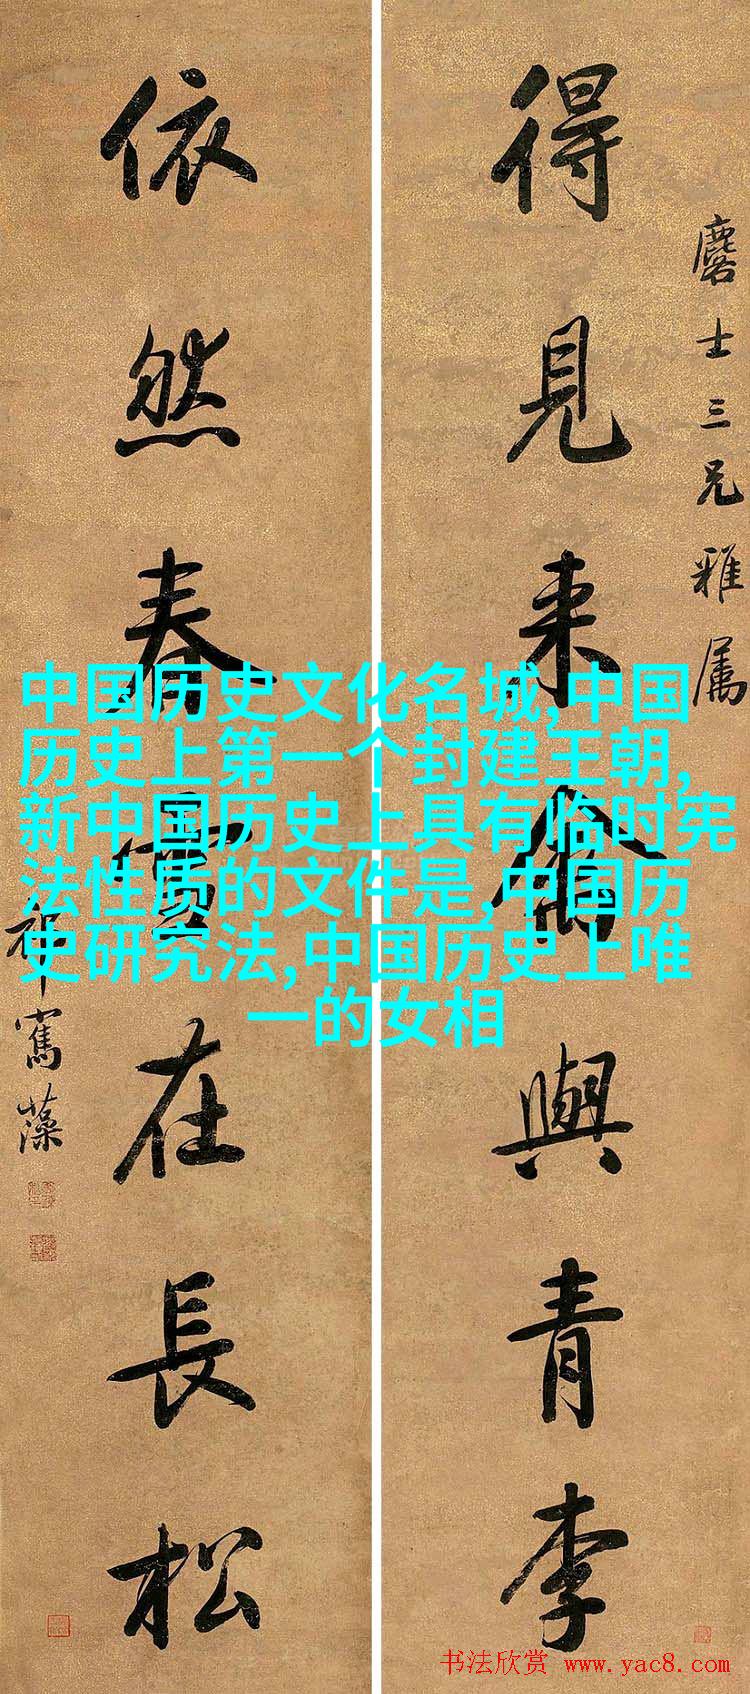 麐士三兄雅属
得見来禽與青李
依然春雪在長松
祁寯藻
中国历史文化名城,中国
历史上第一个封建王朝,
新中国历史上具有临时宪
法性质的文件是,中国历
史研究法,中国历史上唯
一的女相
书法欣赏 www.yac8.com